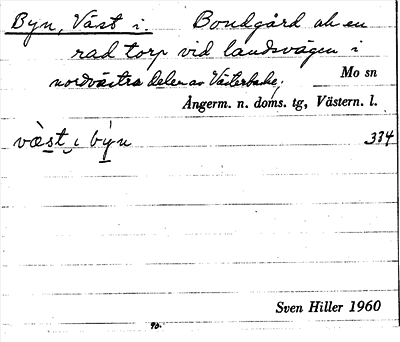 Byn, Väst i. Bondgård och en
rad torp vid landsvägen i
nordvästra delen av Västerbacke.
Mo sn
Ångerm. n. doms. tg, Västern. l.
væ̀st i by̆n 334
Sven Hiller 1960